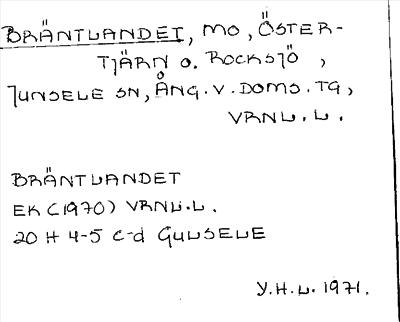 BRÄNTLANDET, MO, ÖSTER-
TJÄRN O. ROCKSJÖ,
JUNSELE SN, ÅNG. V. DOMS. TG,
VRNL. L.
BRÄNTLANDET
EK (1970) VRNL. L.
20 H 4-5 c-d GULSELE
Y. H. L. 1971.